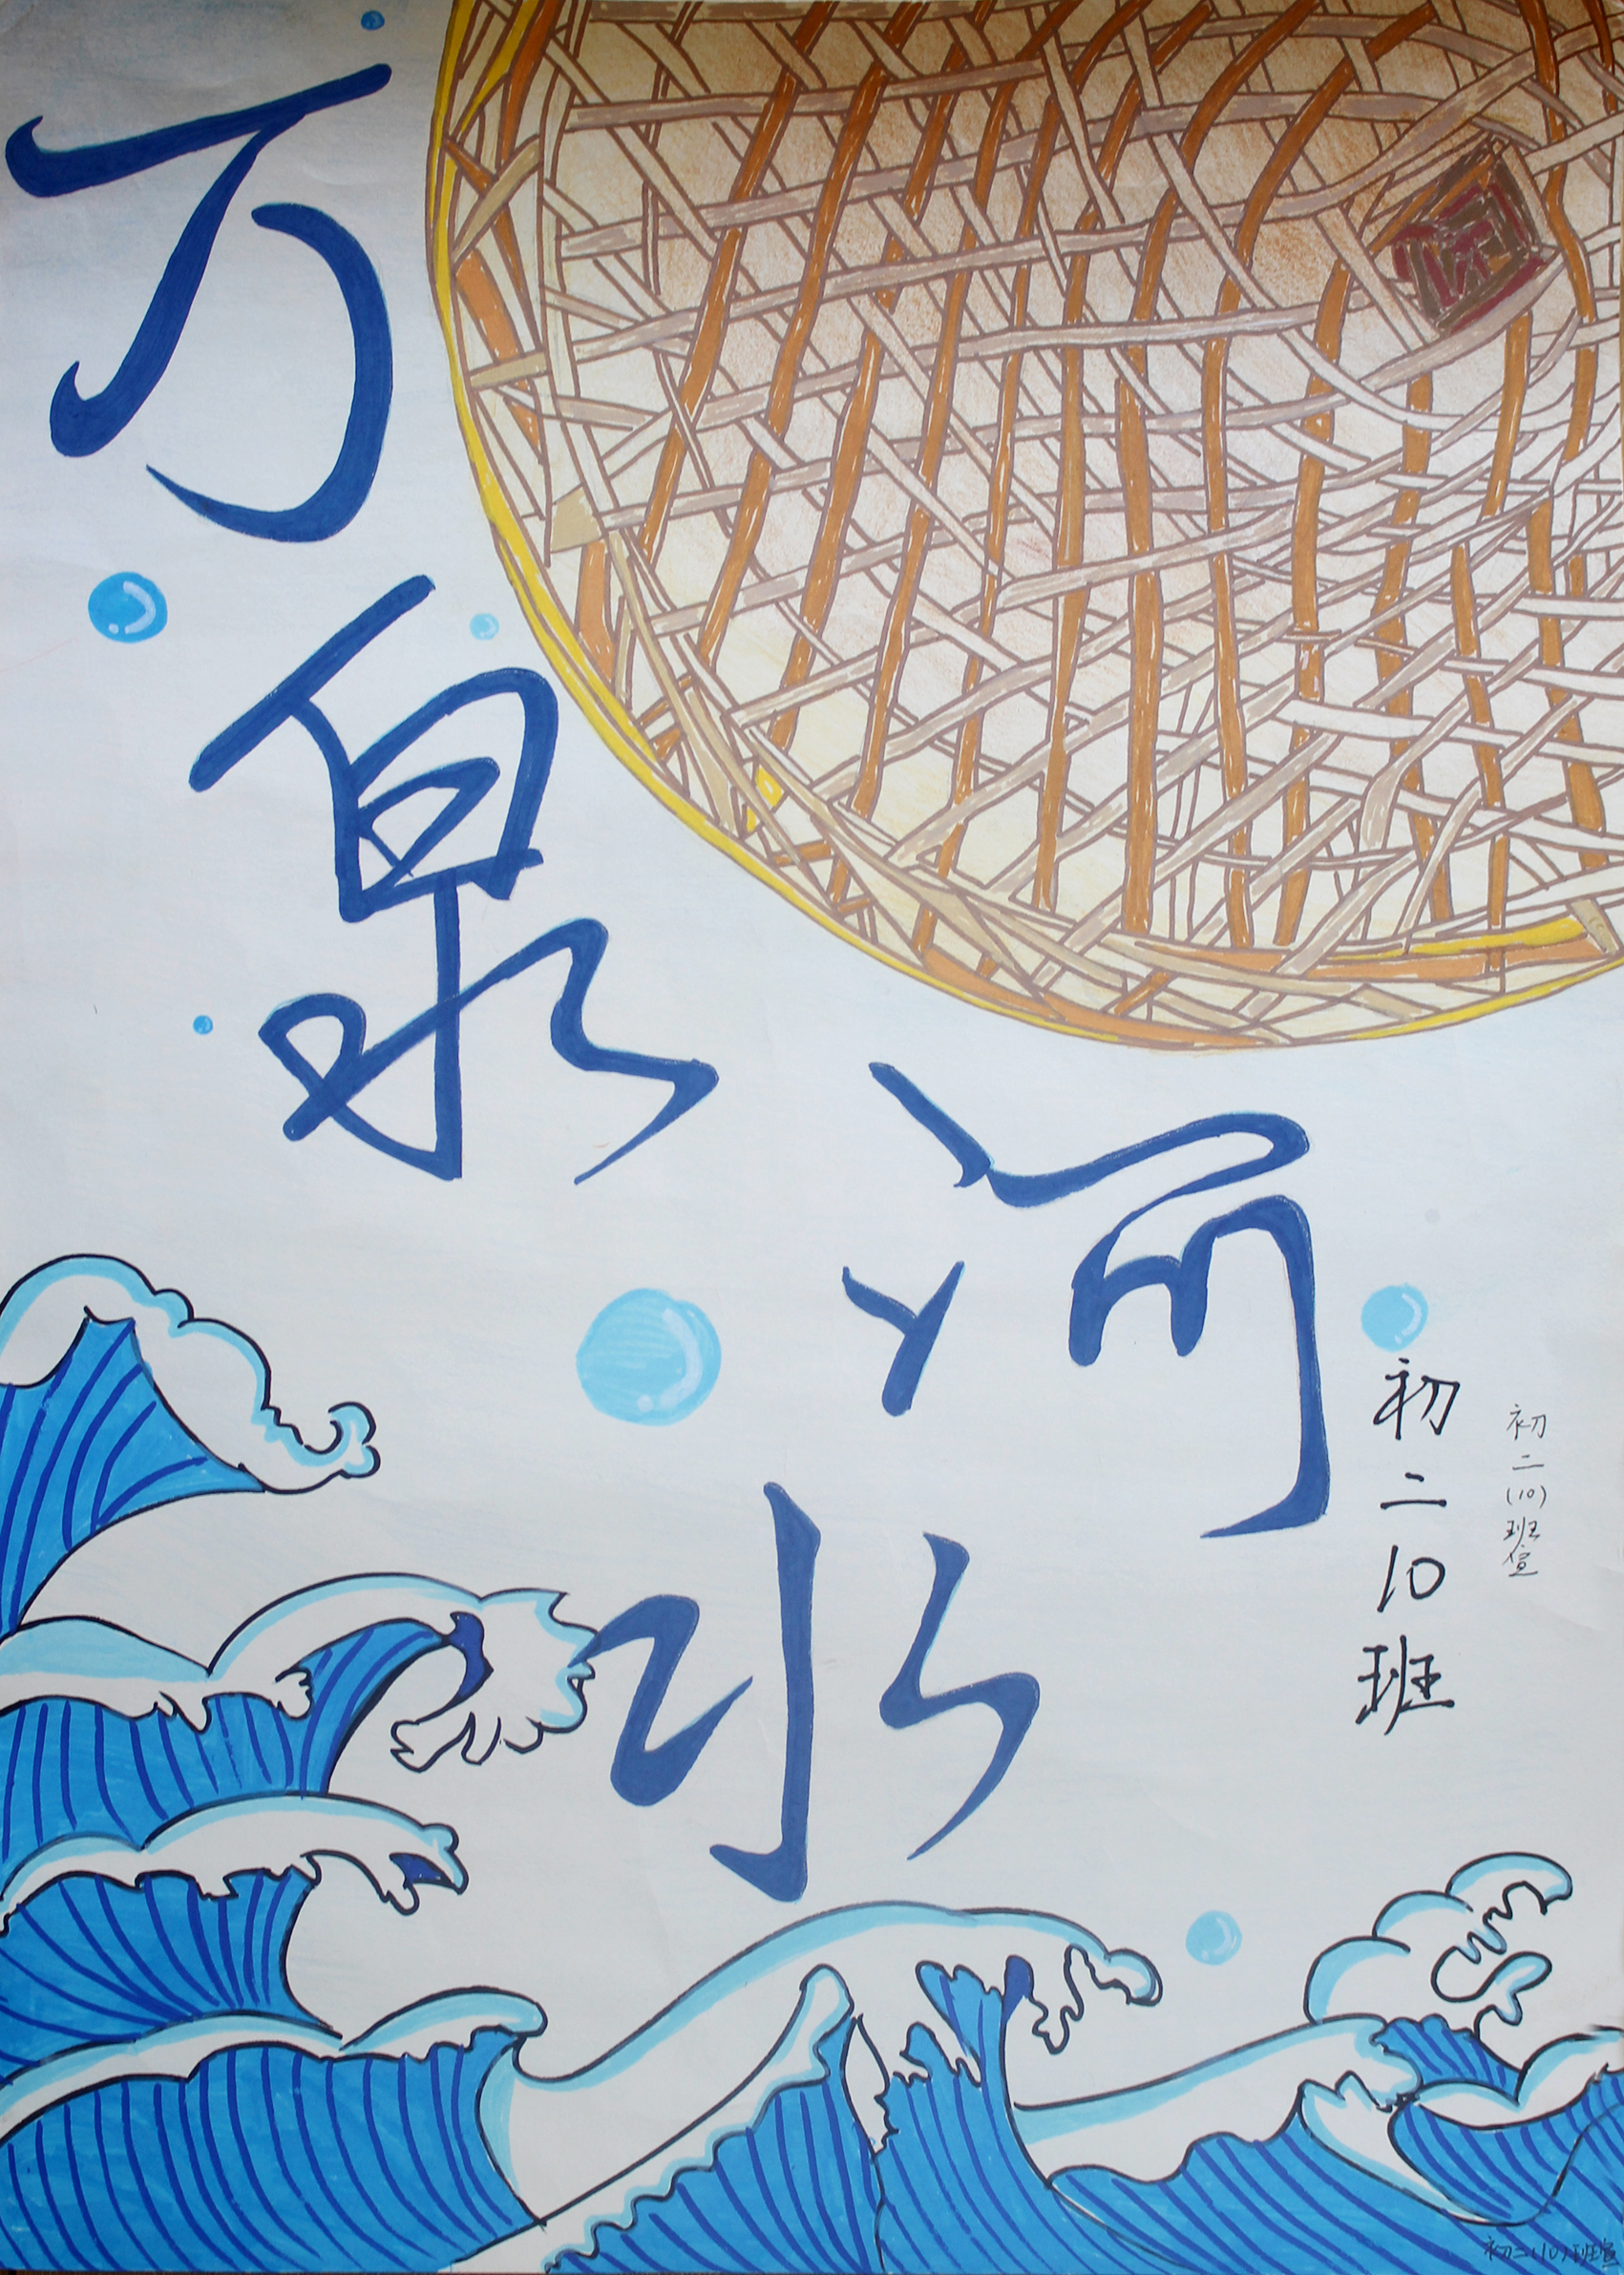 万泉河水
初二10班
初二(10)班宣
初二(10)班宣